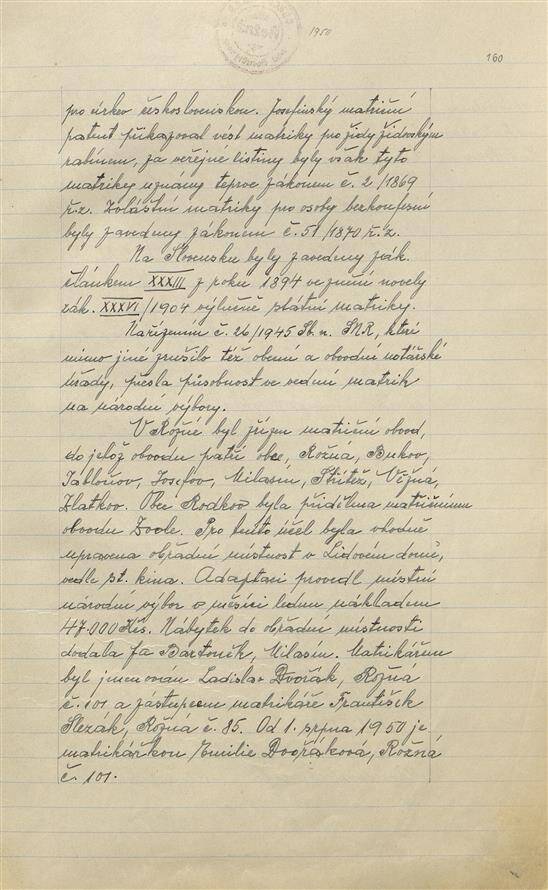 1950
160
pro církev československou. Josefinský matriční
patent přikazoval vést matriky pro židy židovským
rabínem, za veřejné listiny byly však tyto
matriky uznány teprve zákonem č. 2/1869
ř.z. Zvláštní matriky pro osoby bezkonfesní
byly zavedeny zákonem č. 51/1870 ř.z.
Na Slovensku byly zavedeny zák.
článkem XXXIII z roku 1894 ve znění novely
zák. XXXVI/1904 výlučně státní matriky.
Nařízením č. 26/1945 Sb. n. SNR, které
mimo jiné zrušilo též obecní a obvodní notářské
úřady, přešla působnost ve vedení matrik
na národní výbory.
V Rožné byl zřízen matriční obvod,
do jehož obvodu patří obce, Rožná, Bukov,
Jabloňov, Josefov, Milasín, Střítěž, Věžná,
Zlatkov. Obec Rodkov byla přidělena matričnímu
obvodu Zvole. Pro tento účel byla vhodně
upravena obřadní místnost v Lidovém domě,
vedle st. kina. Adaptaci provedl místní
národní výbor v měsíci lednu nákladem
47.000 Kčs. Nábytek do obřadní místnosti
dodala fa Bartoněk, Milasín. Matrikářem
byl jmenován Ladislav Dvořák, Rožná
č. 101 a zástupcem matrikáře František
Slezák, Rožná č. 85. Od 1. srpna 1950 je
matrikářkou Emilie Dvořáková, Rožná
č. 101.